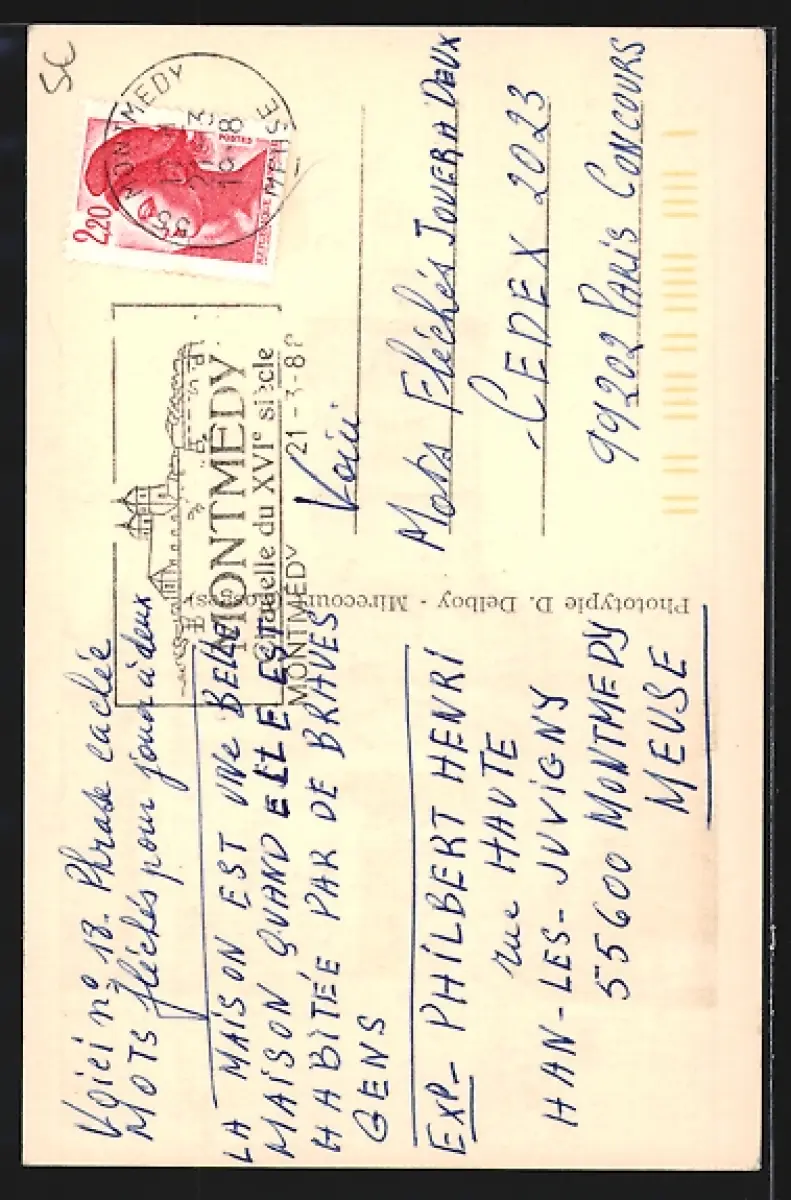 Voici nº 18. Phrase cachée
MOTS fléchés pour jouer à deux
LA MAISON EST UNE BELLE
MAISON QUAND ELLE EST
HABITÉE PAR DE BRAVES
GENS
EXP- PHILBERT HENRI
rue HAUTE
HAN-LES-JUVIGNY
55600 MONTMEDY
MEUSE
Phototypie D. Delboy - Mirecourt (Vosges)
SC
2,20
POSTES
55 MONTMEDY
MEUSE
21-3
198
MONTMEDY
Citadelle du XVIe siècle
MONTMEDY 21-3-8
Voici
Mots Fléchés JOUER A DEUX
CEDEX 2023
99202 PARIS CONCOURS